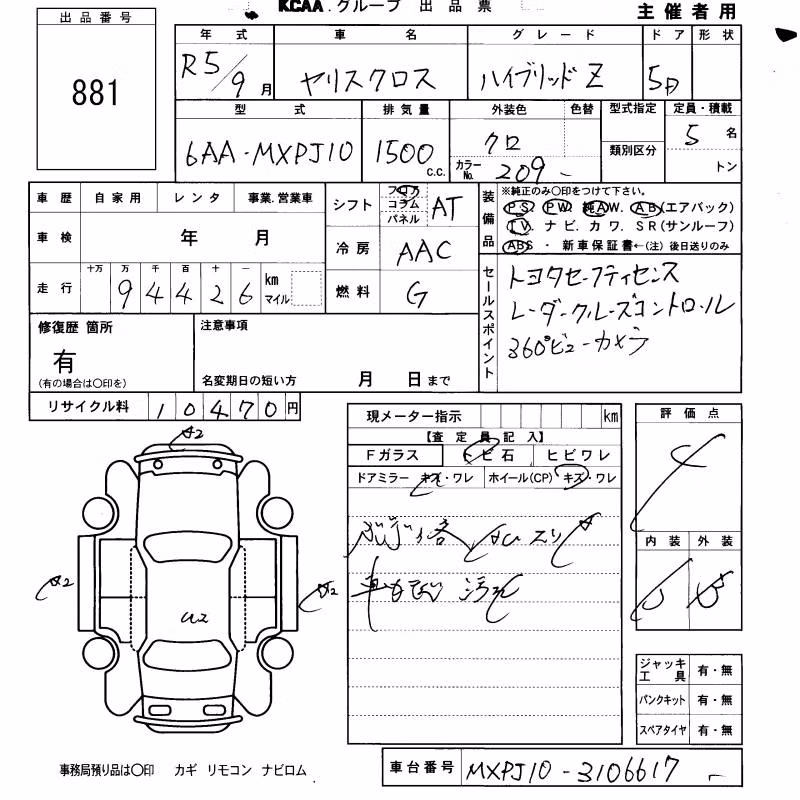 KCAA.グループ 出品票
主催者用
出品番号
881
年式 車名 グレード ドア 形状
R5/9月 ヤリスクロス ハイブリッドZ 5D
型式 排気量 外装色 色替 型式指定 定員・積載
6AA-MXPJ10 1500 c.c. クロ 5名
カラーNo. 209 類別区分 トン
車歴 自家用 レンタ 事業.営業車
車検 年 月
走行 十万 万 千 百 十 一 km マイル
9 4 4 2 6
シフト フロア コラム パネル AT
冷房 AAC
燃料 G
装備品
※純正のみ〇印をつけて下さい。
PS. PW. 純AW. AB(エアバック)
TV. ナビ. カワ. SR(サンルーフ)
ABS ・ 新車保証書←(注) 後日送りのみ
セールスポイント
トヨタセーフティセンス
レーダークルーズコントロール
360°ビューカメラ
修復歴 箇所
有
(有の場合は〇印を)
注意事項
名変期日の短い方 月 日まで
リサイクル料 10470円
現メーター指示 km
【査定員記入】
Fガラス トビ石 ヒビワレ
ドアミラー キズ・ワレ ホイール(CP) キズ・ワレ
評価点
4
内装 外装
A2
A2
A2
U2
ジャッキ 工具 有・無
パンクキット 有・無
スペアタイヤ 有・無
事務局預り品は〇印 カギ リモコン ナビロム
車台番号 MXPJ10-3106617